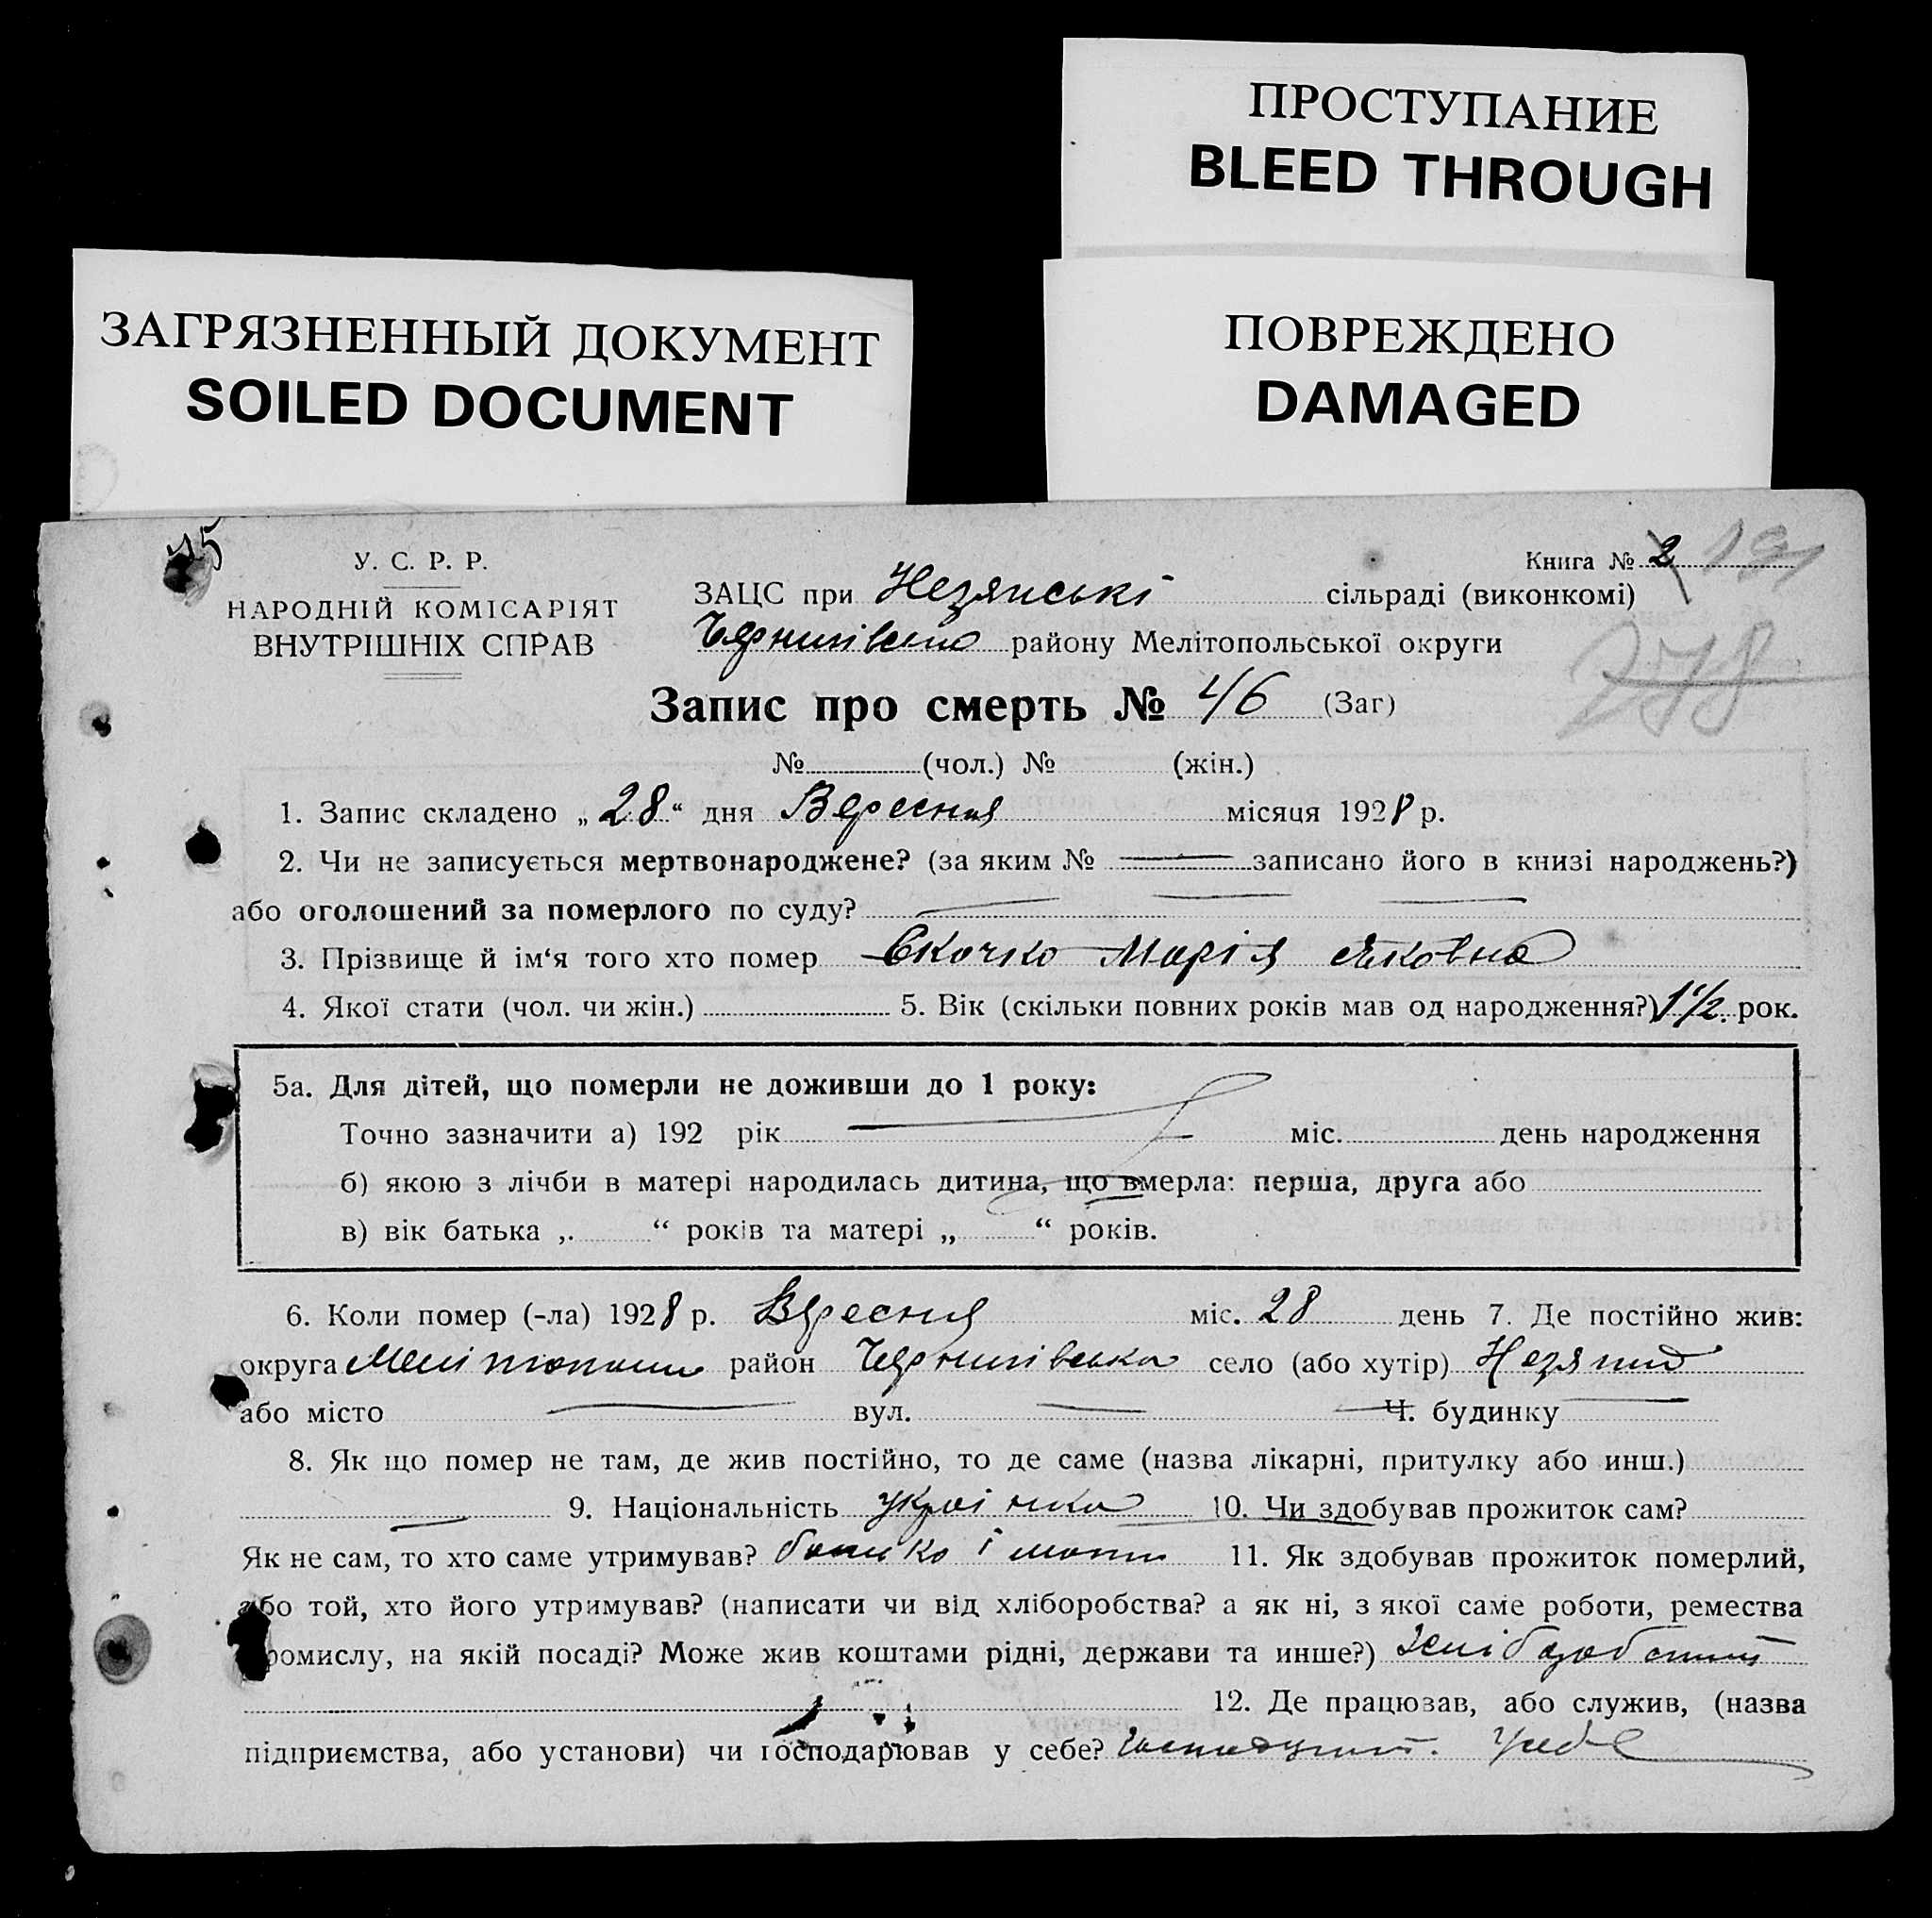 ПРОСТУПАНИЕ
BLEED THROUGH
ЗАГРЯЗНЕННЫЙ ДОКУМЕНТ
SOILED DOCUMENT
ПОВРЕЖДЕНО
DAMAGED
45
У. С. Р. Р.
НАРОДНІЙ КОМІСАРІЯТ
ВНУТРІШНІХ СПРАВ
Книга № 2 191
ЗАЦС при Незянські сільраді (виконкомі)
району Мелітопольської округи
778
Запис про смерть № 46 (Заг)
№ (чол.) № (жін.)
1. Запис складено „ 28 “ дня Вересня місяця 1928 р.
2. Чи не записується мертвонароджене? (за яким № записано його в книзі народжень?)
або оголошений за померлого по суду?
3. Прізвище й ім‘я того хто помер Скочко Марія Яковна
4. Якої стати (чол. чи жін.) 5. Вік (скільки повних років мав од народження?) 1 1/2 рок.
5а. Для дітей, що померли не доживши до 1 року:
Точно зазначити а) 192 рік міс. день народження
б) якою з лічби в матері народилась дитина, що вмерла: перша, друга або
в) вік батька „ “ років та матері „ “ років.
6. Коли помер (-ла) 1928 р. Вересня міс. 28 день 7. Де постійно жив:
округа район Чернигівська село (або хутір)
або місто вул. Ч. будинку
8. Як що помер не там, де жив постійно, то де саме (назва лікарні, притулку або инш.)
9. Національність українка 10. Чи здобував прожиток сам?
Як не сам, то хто саме утримував? батько і мати 11. Як здобував прожиток померлий,
або той, хто його утримував? (написати чи від хліборобства? а як ні, з якої саме роботи, ремества
промислу, на якій посаді? Може жив коштами рідні, держави та инше?)
12. Де працював, або служив, (назва
підприємства, або установи) чи господарював у себе? У себе